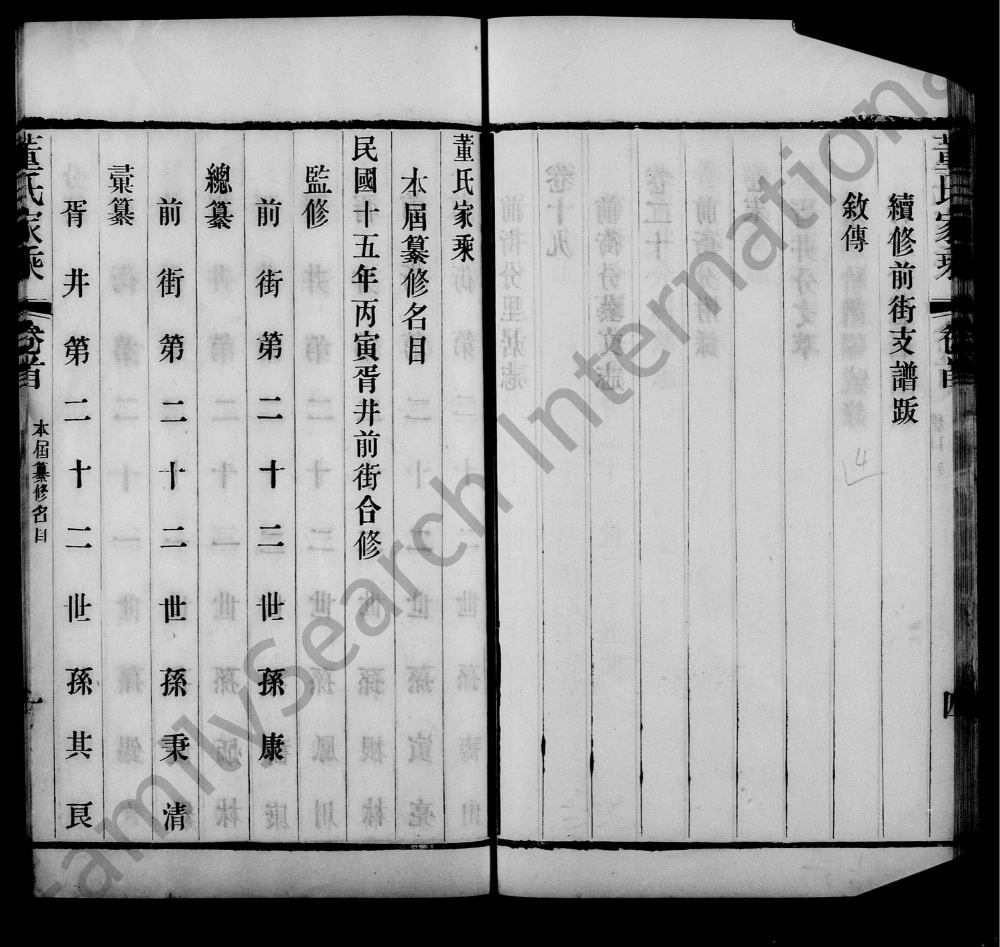 董氏家乘
續修前街支譜跋
敘傳
4
董氏家乘
本屆纂修名目
民國十五年丙寅胥井前街合修
監修
前街第二十二世孫康
總纂
前街第二十二世孫秉清
彚纂
胥井第二十二世孫其良
董氏家乘
卷首
本屆纂修名目
一
FamilySearch International